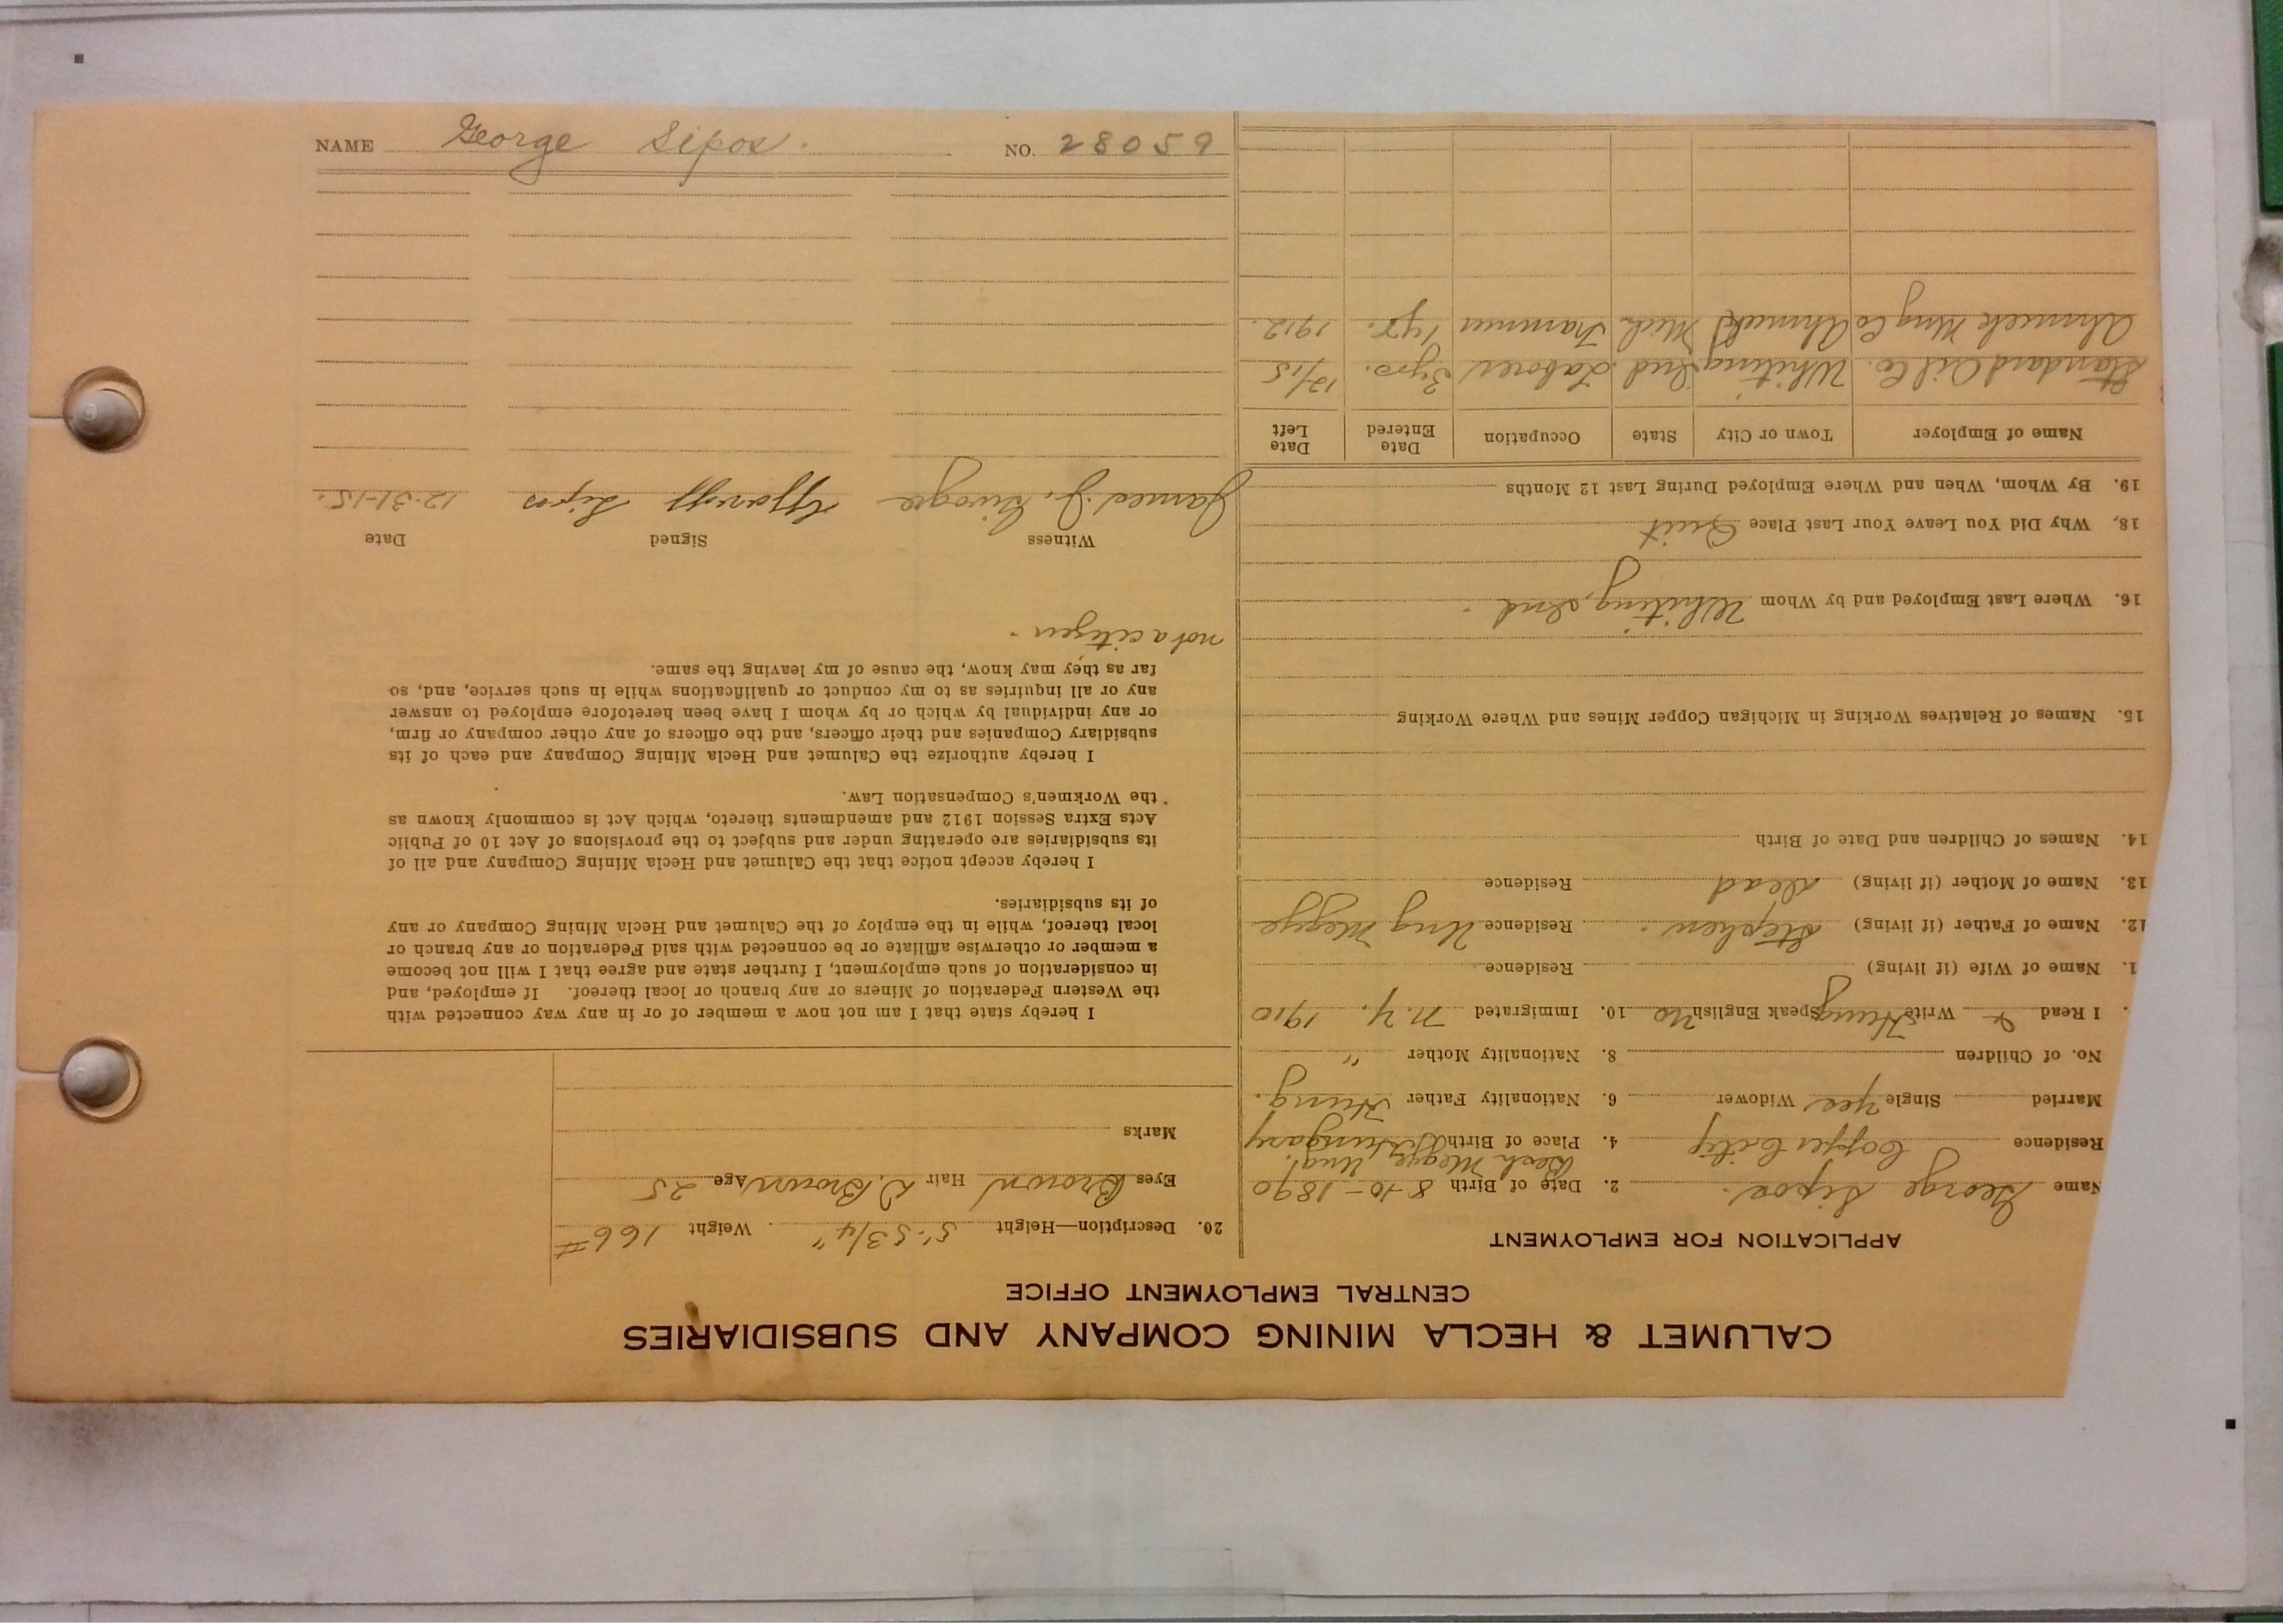 NAME George Sipos. NO. 28059
CALUMET & HECLA MINING COMPANY AND SUBSIDIARIES
CENTRAL EMPLOYMENT OFFICE
APPLICATION FOR EMPLOYMENT
Name George Sipos. 2. Date of Birth 8-10-1890
Residence Copper City 4. Place of Birth Hungary
Married Single Yes Widower 6. Nationality Father Hung.
No. of Children 8. Nationality Mother "
I Read & Write Hung Speak English No 10. Immigrated N.Y. 1910
1. Name of Wife (if living) Residence
12. Name of Father (if living) Stephen. Residence Ung Megye
13. Name of Mother (if living) dead Residence
14. Names of Children and Date of Birth
15. Names of Relatives Working in Michigan Copper Mines and Where Working
16. Where Last Employed and by Whom Whiting, Ind.
18, Why Did You Leave Your Last Place Quit
19. By Whom, When and Where Employed During Last 12 Months
Name of Employer Town or City State Occupation Date Entered Date Left
Standard Oil Co. Whiting Ind. Laborer 3 yrs. 12/15
Ahmeek Mng Co Ahmeek Mich Trammer 1 yr. 1912.
20. Description—Height 5'. 5 3/4" Weight 166 #
Eyes Brown Hair D. Brown Age 25
Marks
I hereby state that I am not now a member of or in any way connected with
the Western Federation of Miners or any branch or local thereof. If employed, and
in consideration of such employment, I further state and agree that I will not become
a member or otherwise affiliate or be connected with said Federation or any branch or
local thereof, while in the employ of the Calumet and Hecla Mining Company or any
of its subsidiaries.
I hereby accept notice that the Calumet and Hecla Mining Company and all of
its subsidiaries are operating under and subject to the provisions of Act 10 of Public
Acts Extra Session 1912 and amendments thereto, which Act is commonly known as
the Workmen's Compensation Law.
I hereby authorize the Calumet and Hecla Mining Company and each of its
subsidiary Companies and their officers, and the officers of any other company or firm,
or any individual by which or by whom I have been heretofore employed to answer
any or all inquiries as to my conduct or qualifications while in such service, and, so
far as they may know, the cause of my leaving the same.
not a citizen.
Witness Signed Date
James J. Sipos 12-31-15.